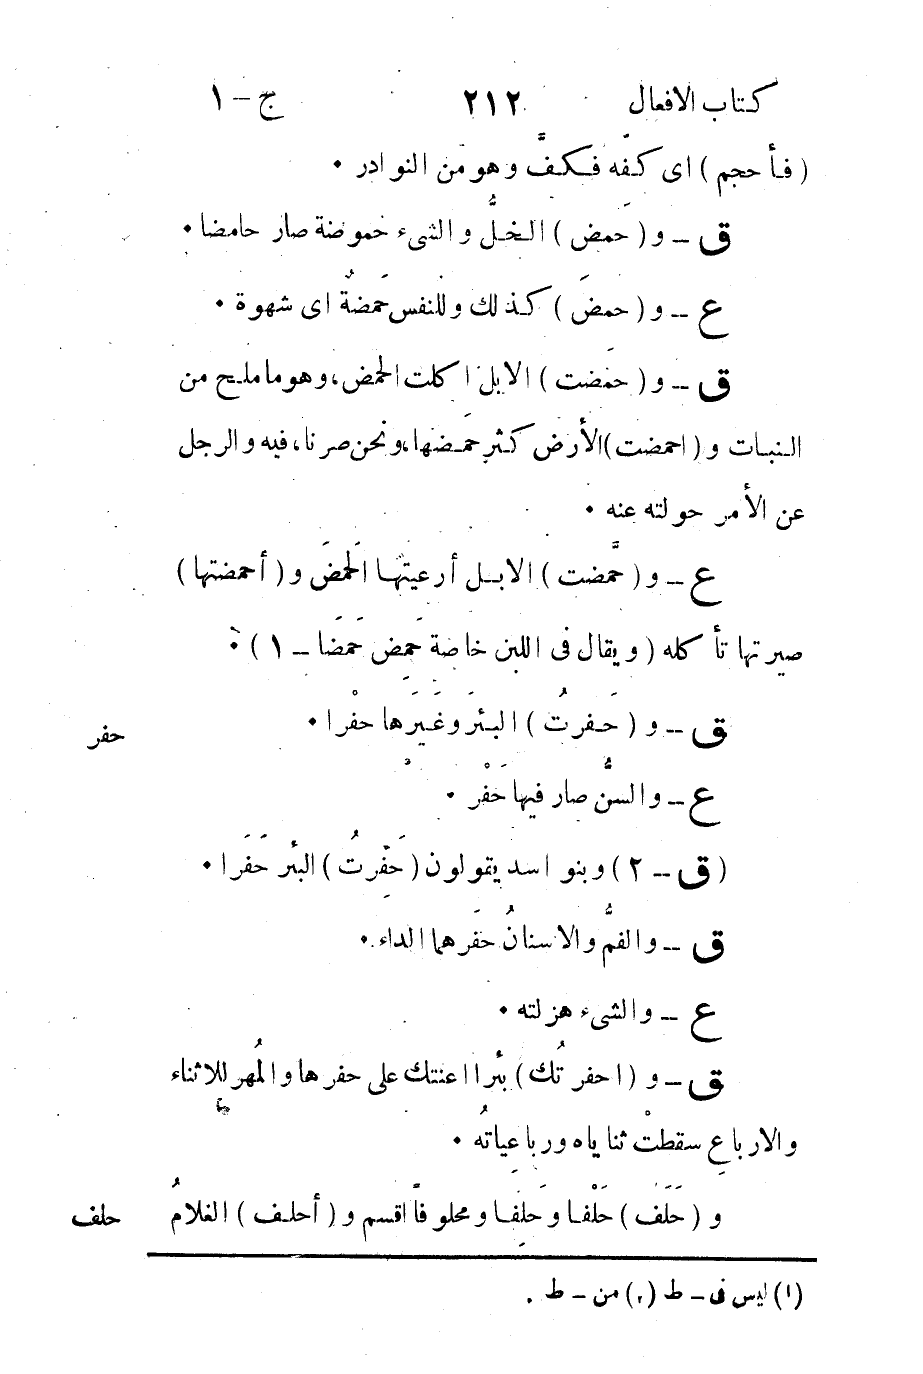 كتاب الافعال ٢١٢ ج - ١
( فأحجم ) اى كفه فكفَّ وهو من النوادر •
ق - و ( حمض ) الخلُّ والشىء حموضة صار حامضا •
ع - و ( حمضَ ) كذلك وللنفس حَمضةٌ اى شهوة •
ق - و ( حمَضت ) الابل اكلت الحمض، وهو ما ملح من
النبات و ( احمضت ) الأرض كثر حَمضها، ونحن صرنا، فيه والرجل
عن الأمر حولته عنه •
ع - و ( حمَّضت ) الابل أرعيتها الحَمضَ و ( أحمضتها )
صيرتها تأكله ( ويقال فى اللبن خاصة حَمِض حَمَضا - ١ ) •
ق - و ( حَفرتُ ) البئرَ وغَيرَها حفْرا •
حفر
ع - والسنُّ صار فيها حَفْرٌ •
( ق - ٢ ) وبنو اسد يقولون ( حَفِرتُ ) البئر حَفَرا •
ق - والفمُّ والاسنانُ حفَرهما الداء •
ع - والشىء هزلته •
ق - و ( احفرتُك ) بئرا اعنتك على حفرها والمُهر للاثناء
والارباعِ سقطتْ ثناياه ورباعِياتُه •
و ( حَلَف ) حَلْفا وحَلِفا ومحلوفاً اقسم و ( أحلف ) الغلامُ
حلف
(١) ليس فى - ط (٢) من - ط .